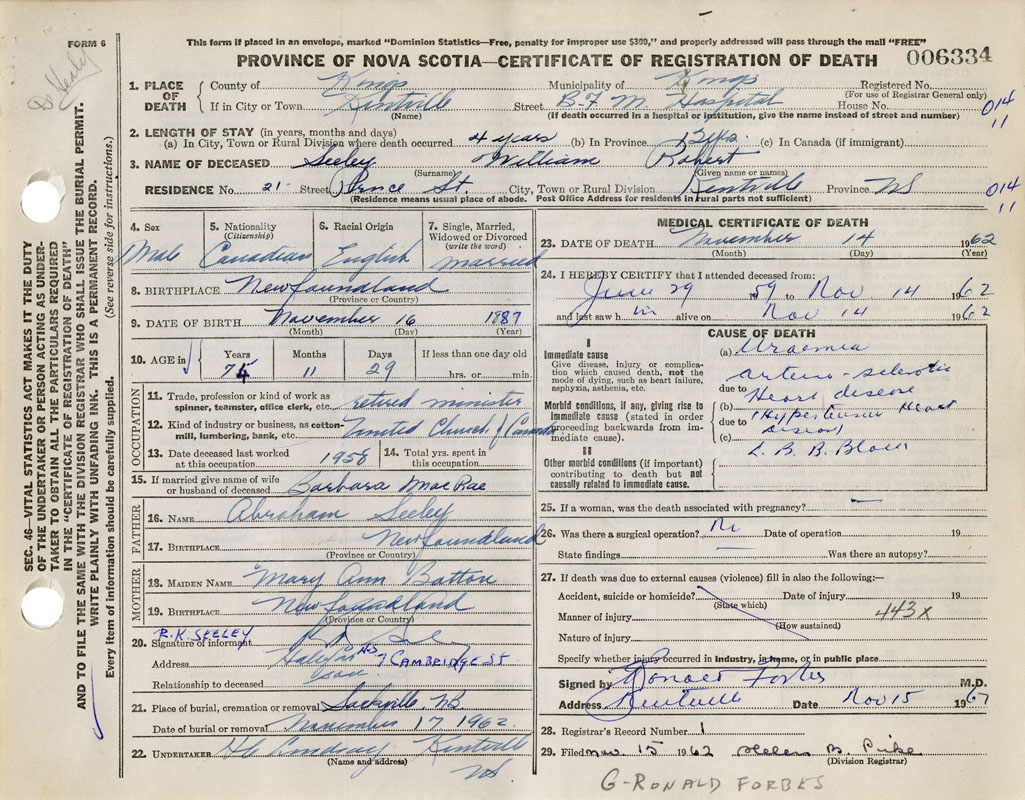 FORM 6
This form if placed in an envelope, marked "Dominion Statistics—Free, penalty for improper use $300," and properly addressed will pass through the mail "FREE"
PROVINCE OF NOVA SCOTIA—CERTIFICATE OF REGISTRATION OF DEATH 006334
Dr Healy
SEC. 46—VITAL STATISTICS ACT MAKES IT THE DUTY
OF THE UNDERTAKER OR PERSON ACTING AS UNDER-
TAKER TO OBTAIN ALL THE PARTICULARS REQUIRED
IN THE "CERTIFICATE OF REGISTRATION OF DEATH"
AND TO FILE THE SAME WITH THE DIVISION REGISTRAR WHO SHALL ISSUE THE BURIAL PERMIT.
WRITE PLAINLY WITH UNFADING INK. THIS IS A PERMANENT RECORD.
Every item of information should be carefully supplied. (See reverse side for instructions.)
1. PLACE OF DEATH
County of Kings Municipality of Kings Registered No.
(For use of Registrar General only)
If in City or Town Kentville Street B-F M. Hospital House No.
(Name) (If death occurred in a hospital or institution, give the name instead of street and number)
014
11
2. LENGTH OF STAY (in years, months and days)
(a) In City, Town or Rural Division where death occurred 4 years (b) In Province (c) In Canada (if immigrant)
3. NAME OF DECEASED Seeley William Robert
(Surname) (Given name or names)
RESIDENCE No. 21 Street Prince St. City, Town or Rural Division Kentville Province NS
(Residence means usual place of abode. Post Office Address for residents in rural parts not sufficient)
014
11
4. Sex
Male
5. Nationality
(Citizenship)
Canadian
6. Racial Origin
English
7. Single, Married,
Widowed or Divorced
(write the word)
married
8. BIRTHPLACE Newfoundland
(Province or Country)
9. DATE OF BIRTH November 16 1887
(Month) (Day) (Year)
10. AGE in
Years Months Days If less than one day old
74 11 29 hrs. or min.
OCCUPATION
11. Trade, profession or kind of work as
spinner, teamster, office clerk, etc. retired minister
12. Kind of industry or business, as cotton-
mill, lumbering, bank, etc. United Church of Canada
13. Date deceased last worked
at this occupation 1958
14. Total yrs. spent in
this occupation
15. If married give name of wife
or husband of deceased Barbara MacRae
FATHER
16. NAME Abraham Seeley
17. BIRTHPLACE Newfoundland
(Province or Country)
MOTHER
18. MAIDEN NAME Mary Ann Batton
19. BIRTHPLACE Newfoundland
(Province or Country)
R.K. SEELEY
20. Signature of informant
Address Halifax NS 7 CAMBRIDGE ST
Relationship to deceased
21. Place of burial, cremation or removal Sackville, NB
Date of burial or removal November 17 1962
22. UNDERTAKER Kentville
(Name and address) NS
MEDICAL CERTIFICATE OF DEATH
23. DATE OF DEATH November 14 1962
(Month) (Day) (Year)
24. I HEREBY CERTIFY that I attended deceased from:
June 29 1959 to Nov. 14 1962
and last saw him alive on Nov 14 1962
CAUSE OF DEATH
I
Immediate cause
Give disease, injury or complica-
tion which caused death, not the
mode of dying, such as heart failure,
asphyxia, asthenia, etc.
(a) Uraemia
due to arterio-sclerotic
Heart disease
Morbid conditions, if any, giving rise to
immediate cause (stated in order
proceeding backwards from im-
mediate cause).
(b) (Hypertensive Heart
due to disease)
(c)
II
Other morbid conditions (if important)
contributing to death but not
causally related to immediate cause.
25. If a woman, was the death associated with pregnancy?
26. Was there a surgical operation? No Date of operation 19
State findings Was there an autopsy?
27. If death was due to external causes (violence) fill in also the following:—
Accident, suicide or homicide? Date of injury 19
(State which)
Manner of injury 443X
(How sustained)
Nature of injury
Specify whether injury occurred in industry, in home, or in public place
Signed by Ronald Forbes M.D.
Address Kentville Date Nov 15 196
28. Registrar's Record Number 1
29. Filed Nov 15 1962 Helen B. Pike
(Division Registrar)
G-RONALD FORBES